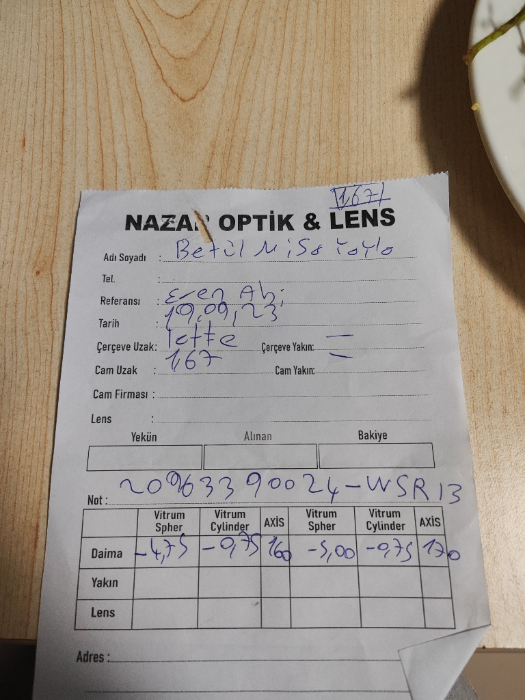 1.67
NAZAR OPTİK & LENS
Adı Soyadı : Betül
Tel. :
Referansı : Eren Abi
Tarih : 19.09.23
Çerçeve Uzak: Çerçeve Yakın: —
Cam Uzak : 1,67 Cam Yakın: —
Cam Firması :
Lens :
Yekün Alınan Bakiye
Not : 20963390024-WSR13
Vitrum Spher Vitrum Cylinder AXİS Vitrum Spher Vitrum Cylinder AXİS
Daima -4,75 -0,75 160 -5,00 -0,75 170
Yakın
Lens
Adres :